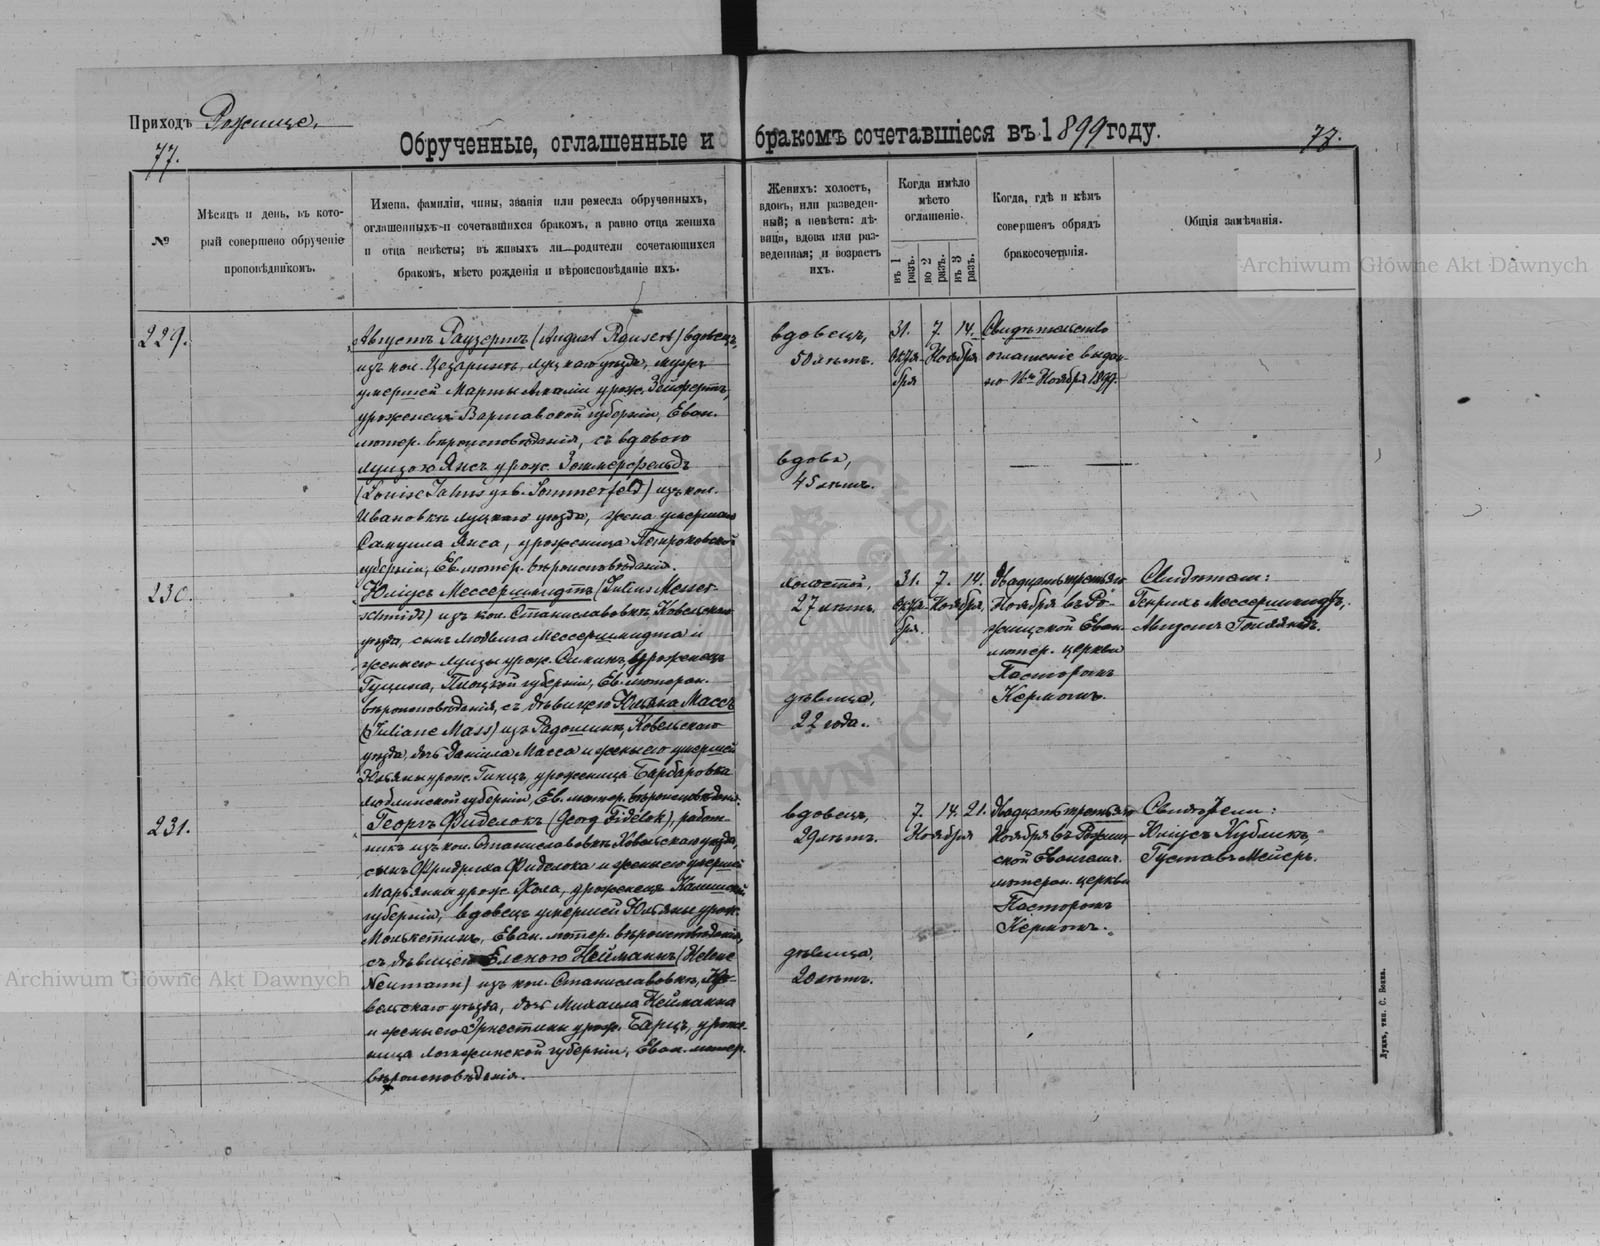 Приходъ Рожище.
77.
Обрученные, оглашенные и бракомъ сочетавшіеся въ 1899 году.
№
Мѣсяцъ и день, въ кото-
рый совершено обрученіе
проповѣдникомъ.
Имена, фамиліи, чины, званія или ремесла обрученныхъ,
оглашенныхъ и сочетавшихся бракомъ, а равно отца жениха
и отца невѣсты; въ живыхъ ли родители сочетающихся
бракомъ, мѣсто рожденія и вѣроисповѣданіе ихъ.
Женихъ: холостъ,
вдовъ, или разведен-
ный; а невѣста: дѣ-
вица, вдова или раз-
веденная; и возрастъ
ихъ.
Когда имѣло
мѣсто
оглашеніе.
въ 1 разъ.
во 2 разъ.
въ 3 разъ.
Когда, гдѣ и кѣмъ
совершенъ обрядъ
бракосочетанія.
Общія замѣчанія.
229.
Августъ Раузертъ (August Rausert) вдовецъ,
изъ кол. Цезаринъ, Луцкаго уѣзда, мужъ
умершей Марты Амаліи урож. Зейфертъ,
уроженецъ Варшавской губерніи, Еван.
лютер. вѣроисповѣданія, съ вдовою
Луизою Янсъ урож. Зоммерфельдъ
(Louise Jahns geb. Sommerfeld) изъ кол.
Ивановкѣ Луцкаго уѣзда, жена умершаго
Самуила Янса, уроженица Петроковской
губерніи, Ев. лютер. вѣроисповѣданія.
вдовецъ,
50 лѣтъ.
вдова,
45 лѣтъ.
31. 7. 14.
Октя- Ноября
бря
Свидѣтельство
оглашеніе выда-
но 16го Ноября 1899.
230.
Юліусъ Мессершмидтъ (Julius Messer-
schmidt) изъ кол. Станиславовкѣ, Ковельскаго
уѣзда, сынъ Людвига Мессершмидта и
жены его Луизы урож. уроженецъ
Плоцкой губерніи, Ев. лютеран.
вѣроисповѣданія, съ дѣвицею Юліана Массъ
(Juliane Mass) изъ Радошинъ, Ковельскаго
уѣзда, дочь Даніила Масса и жены его умершей
Юльяны урож. Гинцъ, уроженица Барбаровка
Люблинской губерніи, Ев. лютер. вѣроисповѣданія.
холостой,
27 лѣтъ.
дѣвица,
22 года.
31. 7. 14.
Октя- Ноября.
бря.
Двадцать третьяго
Ноября въ Ро-
жищской Еван.
лютер. церкви
Пасторомъ
Кермомъ.
Свидѣтели:
Генрихъ Мессершмидтъ,
Августъ
231.
Георгъ Фиделокъ (Georg Fidelok), работ-
никъ изъ кол. Станиславовкѣ Ковельскаго уѣзда,
сынъ Фридриха Фиделока и жены его умершей
Марьянны урож. Хола, уроженецъ Калишской
губерніи, вдовецъ умершей Юльяны урож.
Еван. лютер. вѣроисповѣданія,
съ дѣвицею Еленою Нейманнъ (Helene
Neumann) изъ кол. Станиславовкѣ, Ко-
вельскаго уѣзда, дочь Михаила Нейманна
и жены его Эрнестины урож. Барцъ, уроже-
ница Ломжинской губерніи, Еван. лютер.
вѣроисповѣданія.
вдовецъ,
29 лѣтъ.
дѣвица,
20 лѣтъ.
7. 14. 21.
Ноября
Двадцать третьяго
Ноября въ Рожищ-
ской Евангел.
лютеран. церкви
Пасторомъ
Кермомъ.
Свидѣтели:
Юліусъ Кубликъ,
Густавъ Мейеръ.
Луцкъ, тип. С. Бокка.
Archiwum Główne Akt Dawnych
Archiwum Główne Akt Dawnych